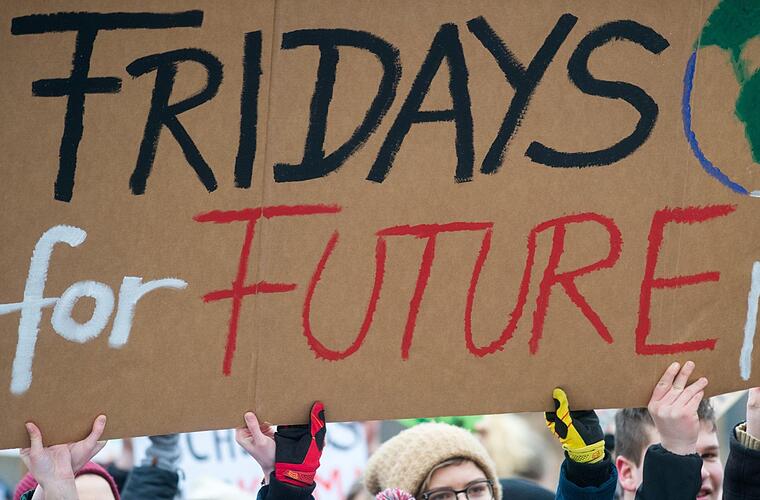 FRIDAYS
for FUTURE